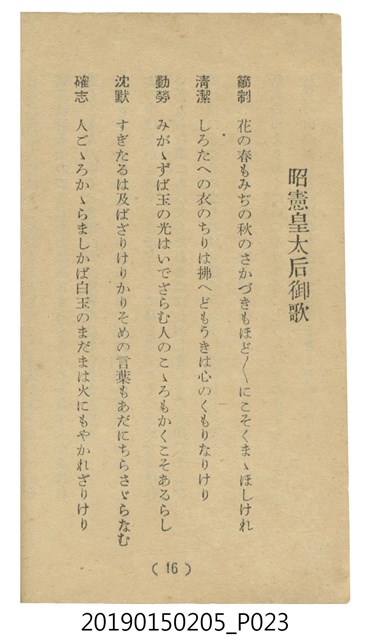 昭憲皇太后御歌
節制 花の春もみぢの秋のさかづきもほど〳〵にこそくまゝほしけれ
淸潔 しろたへの衣のちりは拂へどもうきは心のくもりなりけり
勤勞 みがゝずば玉の光はいでざらむ人のこゝろもかくこそあるらし
沈默 すぎたるは及ばざりけりかりそめの言葉もあだにちらさゞらなむ
確志 人ごゝろかゝらましかば白玉のまだまは火にもやかれざりけり
(16)
20190150205_P023